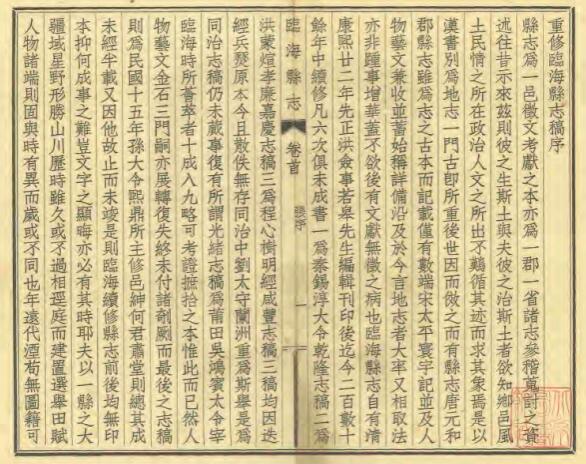 重修臨海縣志稿序
縣志爲一邑徵文考獻之本亦爲一郡一省諸志參稽蒐討之資
述往昔示來茲則彼之生斯土與夫彼之治斯土者欲知鄉邑風
土民情之所在政治人文之所出不鷬循其迹而求其象焉是以
漢書別爲地志一門古卽所重後世因而倣之而有縣志唐元和
郡縣志雖爲志之古本而記載僅有數端宋太平寰宇記並及人
物藝文兼收並蓄始稱詳備沿及於今言地志者大率又相取法
亦非踵事增華蓋不欲後有文獻無徵之病也臨海縣志自有清
康熙廿二年先正洪僉事若皋先生編輯刊印後迄今二百數十
餘年中續修凡六次俱未成書一爲秦錫淳大令乾隆志稿二爲
臨海縣志
卷首
張序
一
洪蒙煊孝廉嘉慶志稿三爲程心樹明經咸豐志稿三稿均因迭
經兵燹原本今且散佚無存同治中劉太守蘭洲重爲斯舉是爲
同治志稿仍未蕆事復有所謂光緒志稿爲莆田吳鴻賓大令宰
臨海時所薈萃者十成入九略可考證摭拾之本惟此而已然人
物藝文金石三門嗣亦展轉復失終未付諸剞劂而最後之志稿
則爲民國十五年孫大令熙鼎所主修邑紳何君肅堂則總其成
未經半載又因他故止而未竣是則臨海續修縣志前後均無印
本抑何成事之難豈文字之顯晦亦必有其時耶夫以一縣之大
疆域星野形勝山川歷時雖久或不過相逕庭而建置選舉田賦
人物諸端則固與時有異而歲或不同也年遠代湮苟無圖籍可